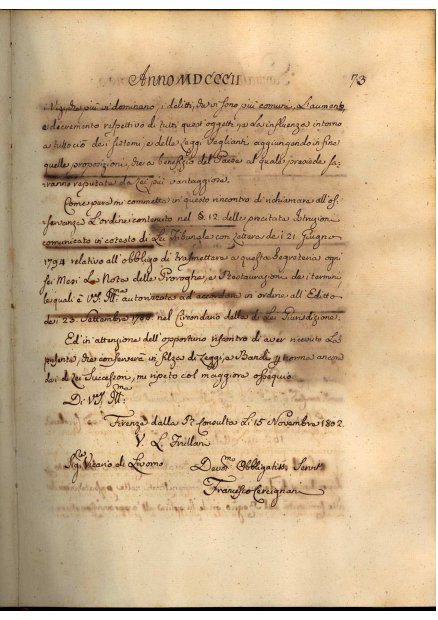 Anno MDCCCII
73
i Vizj che più vi dominano, i delitti, che vi sono più comuni, L'aumento,
e decremento respettivo di tutti quest'oggetti, e La influenza intorno
a tutto ciò dei sistemi, e delle Leggi Veglianti aggiungendo in fine
quelle proposizioni, che a benefizio del Paese al quale presiede sa-
ranno reputate da Lei più vantaggiose.
Come pure mi commette in questo rincontro di richiamare all'os-
servanza L'ordine contenuto nel §. 12. delle precitate Istruzioni
comunicate in cotesto di Lei Tribunale con Lettera de' 21 Giugno
1794 relativo all'obbligo di trasmettere a questa Segreteria ogni
sei Mesi La Nota delle Proroghe, e Restaurazioni dei termini,
le quali è VS. Ill.ma autorizzata ad accordare in ordine all'Editto
de' 23. Settembre 1788 nel Circondario della di Lei Giurisdizione.
Ed in attenzione dell'opportuno riscontro di aver ricevuta La
presente, che conserverà in filza di Leggi, e Bandi p norma ancora
dei di Lei Successori, mi ripeto col maggiore ossequio
D. VS. Ill.ma
Firenze dalla R. Consulta Li 15 Novembre 1802.
V. L. Frullani
Sig.r Vicario di Livorno
Devot.mo Obbligatiss. Servit.
Francesco Cercignani